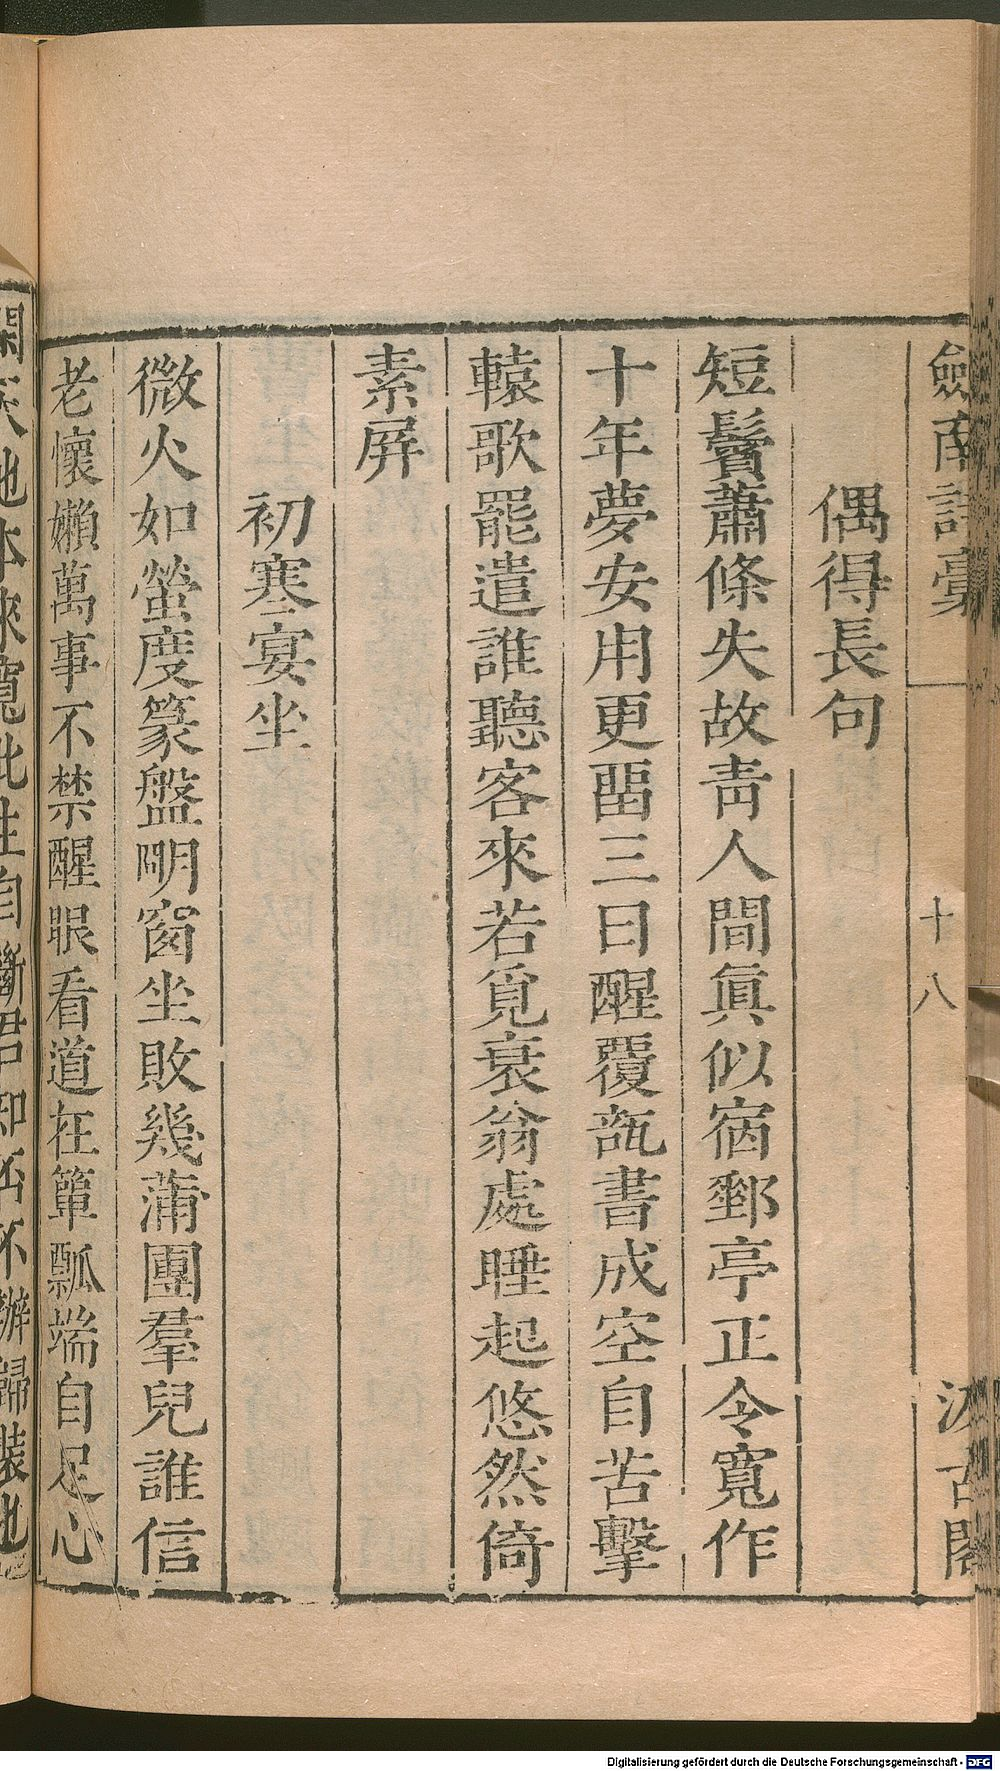 劒南詩稾
十八
汲古閣
偶得長句
短鬢蕭條失故靑人間眞似宿郵亭正令寬作
十年夢安用更畱三日醒覆瓿書成空自苦擊
轅歌罷遣誰聽客來若覓衰翁處睡起悠然倚
素屛
初寒宴坐
微火如螢度篆盤明窗坐敗幾蒲團羣兒誰信
老懷嬾萬事不禁醒眼看道在簞瓢端自足心
閑天地本來寬此生自斷君知否不辦歸裝也
Digitalisierung gefördert durch die Deutsche Forschungsgemeinschaft - DFG